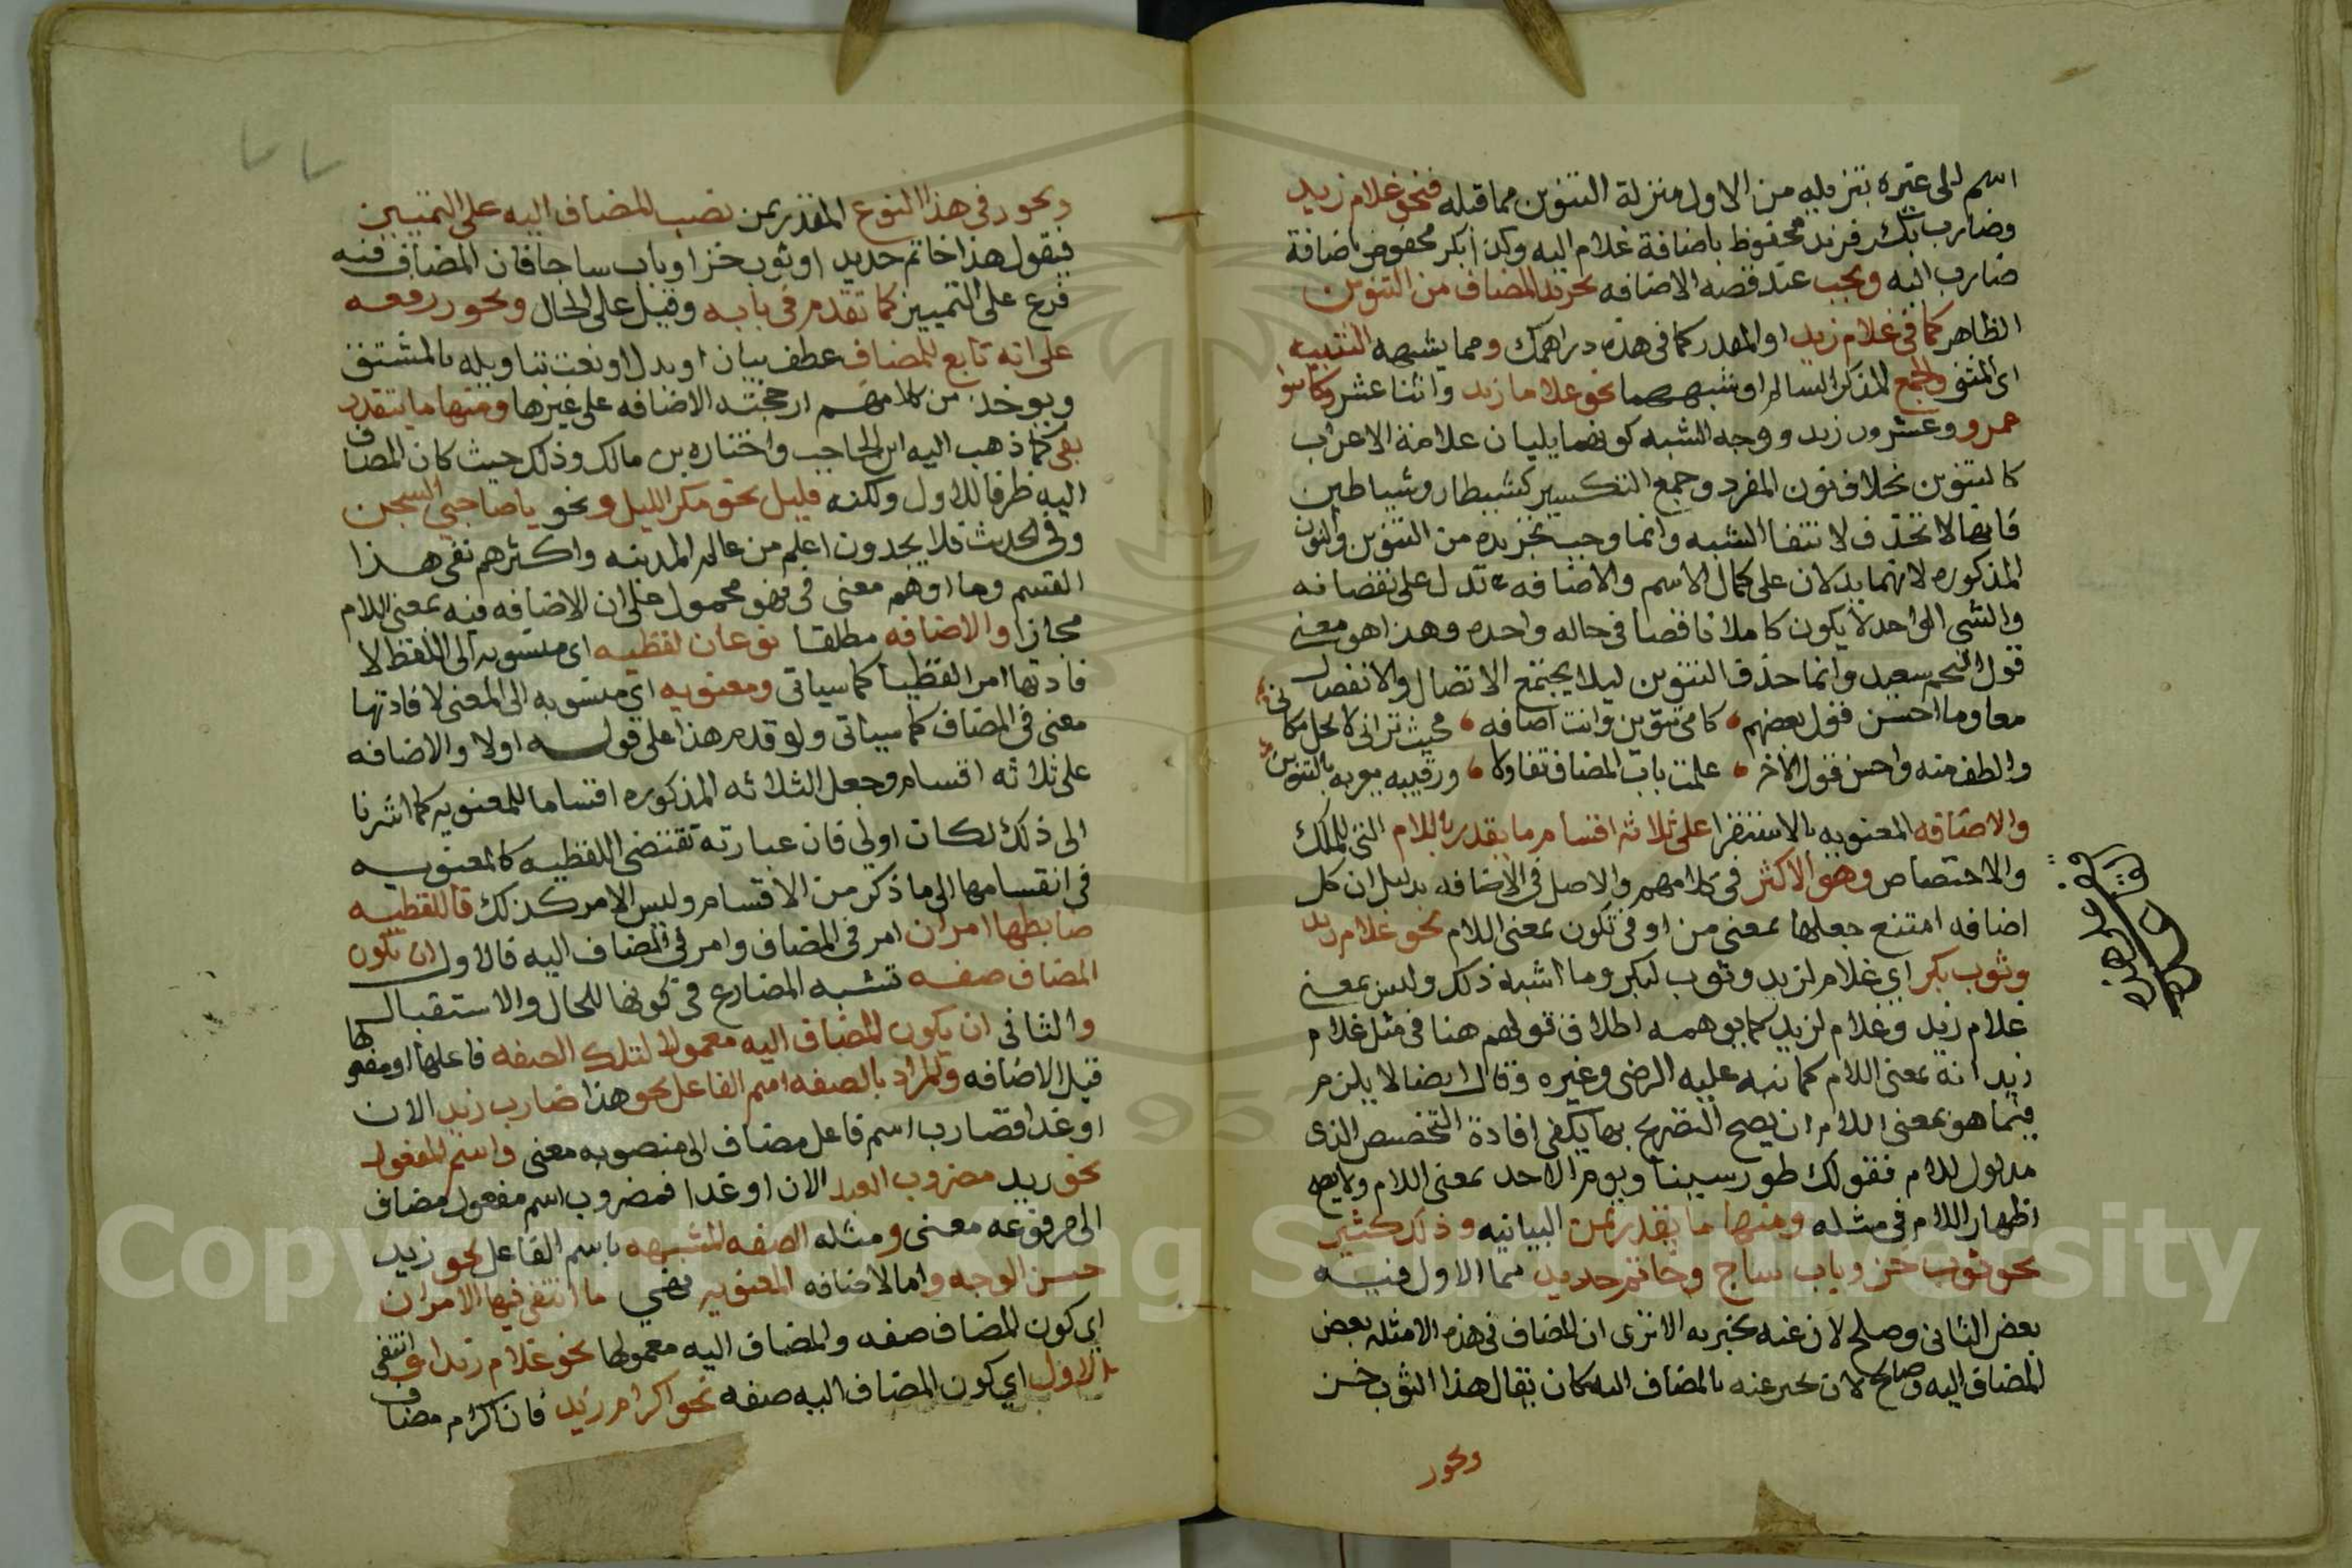 اسم الى غيره بتنزيله من الاول منزلة التنوين مما قبله فنحو غلام زيد
وضارب بكر فزيد مخفوظ باضافة غلام اليه وكذا بكر مخفوض باضافة
ضارب اليه ويجب عند قصد الاضافه تجريد المضاف من التنوين
الظاهر كما في غلام زيد او المقدر كما في هذه دراهمك ومما يشبهه التثنيه
اى المثنى والجمع المذكر السالم او شبههما نحو غلاما زيد واثنا عشر وكاتبوا
عمرو وعشرون زيد ووجه الشبه كونهما يليان علامة الاعراب
كالتنوين بخلاف نون المفرد وجمع التكسير كشيطان وشياطين
فانها لا تحذف لانتفا الشبه وانما وجب تجريده من التنوين والنون
المذكوره لانهما يدلان على كمال الاسم والاضافه تدل على نقصانه
والشي الواحد لا يكون كاملا ناقصا في حاله واحده وهذا هو معنى
قول النجم سعيد وانما حذف التنوين ليلا يجتمع الاتصال والانفصال
معا وما احسن قول بعضهم كاني تنوين وانت اضافه فحيث تراني لا تحل مكاني
والطف منه واحسن قول الاخر علمت باب المضاف تفاولا ورقيبه يعربه بالتنوين
والاضافه المعنويه بالاستقرا على ثلاثه اقسام ما يقدر باللام التي للملك
والاختصاص وهو الاكثر في كلامهم والاصل في الاضافه بدليل ان كل
اضافه امتنع جعلها بمعنى من او في تكون بمعنى اللام نحو غلام زيد
وثوب بكر اي غلام لزيد وثوب لبكر وما اشبه ذلك وليس بمعنى
غلام زيد وغلام لزيد كما يوهمه اطلاق قولهم هنا في مثل غلام
زيد انه بمعنى اللام كما نبه عليه الرضى وغيره وقال ايضا لا يلزم
فيما هو بمعنى اللام ان يصح التصريح بها يكفي افادة التخصيص الذى
مدلول للام فقولك طور سينا ويوم الاحد بمعنى اللام ولا يصح
اظهار اللام في مثله ومنها ما يقدر بمن البيانيه وذلك كثير
نحو ثوب خز وباب ساج وخاتم حديد مما الاول فيه
بعض الثاني وصلح لان عنه يخبر به الا ترى ان المضاف في هذه الامثله بعض
المضاف اليه وصالح لان يخبر عنه بالمضاف اليه كان يقال هذا الثوب خز
ويجوز
ويجوز في هذا النوع المقدر بمن نصب المضاف اليه على التمييز
فيقول هذا خاتم حديد او ثوب خزا وباب ساجا فان المضاف فيه
فرع على التمييز كما تقدم في بابه وقيل على الحال ويجوز رفعه
على انه تابع للمضاف عطف بيان او بدل او نعت بتاويله بالمشتق
ويوخذ من كلامهم ارجحيته الاضافه على غيرها ومنها ما يتقدر
بفي كما ذهب اليه ابن الحاجب واختاره بن مالك وذلك حيث كان المضاف
اليه ظرفا للاول ولكنه قليل نحو مكر الليل ونحو يا صاحبي السجن
وفي الحديث فلا يجدون اعلم من عالم المدينه واكثرهم نفى هذا
القسم وما اوهم معنى في فهو محمول على ان الاضافه فيه بمعنى اللام
مجازا والاضافه مطلقا نوعان لفظيه اى منسوبه الى اللفظ لا
فادتها امرا لفظيا كما سياتى ومعنويه اي منسوبه الى المعنى لافادتها
معنى في المضاف كما سياتى ولو قدم هذا على قوله اولا والاضافه
على ثلاثه اقسام وجعل الثلاثه المذكوره اقساما للمعنويه كما اشرنا
الى ذلك لكان اولى فان عبارته تقتضى اللفظيه كالمعنويه
في انقسامها الى ما ذكر من الاقسام وليس الامر كذلك فاللفظيه
ضابطها امران امر في المضاف وامر في المضاف اليه فالاول ان تكون
المضاف صفه تشبه المضارع في كونها للحال والاستقبال
والثاني ان يكون المضاف اليه معمولا لتلك الصفه فاعلها او مفعولها
قبل الاضافه والمراد بالصفه اسم الفاعل نحو هذا ضارب زيد الان
او غدا فضارب اسم فاعل مضاف الى منصوبه معنى واسم المفعول
نحو زيد مضروب العبد الان او غدا فمضروب اسم مفعول مضاف
الى مرفوعه معنى ومثله الصفه المشبهه باسم الفاعل نحو زيد
حسن الوجه واما الاضافه المعنويه فهي ما انتفى فيها الامران
اي كون المضاف صفه والمضاف اليه معمولها نحو غلام زيد او انتفى
الاول اي كون المضاف اليه صفه نحو اكرام زيد فان اكرام مضاف
Copyright © King Saud University